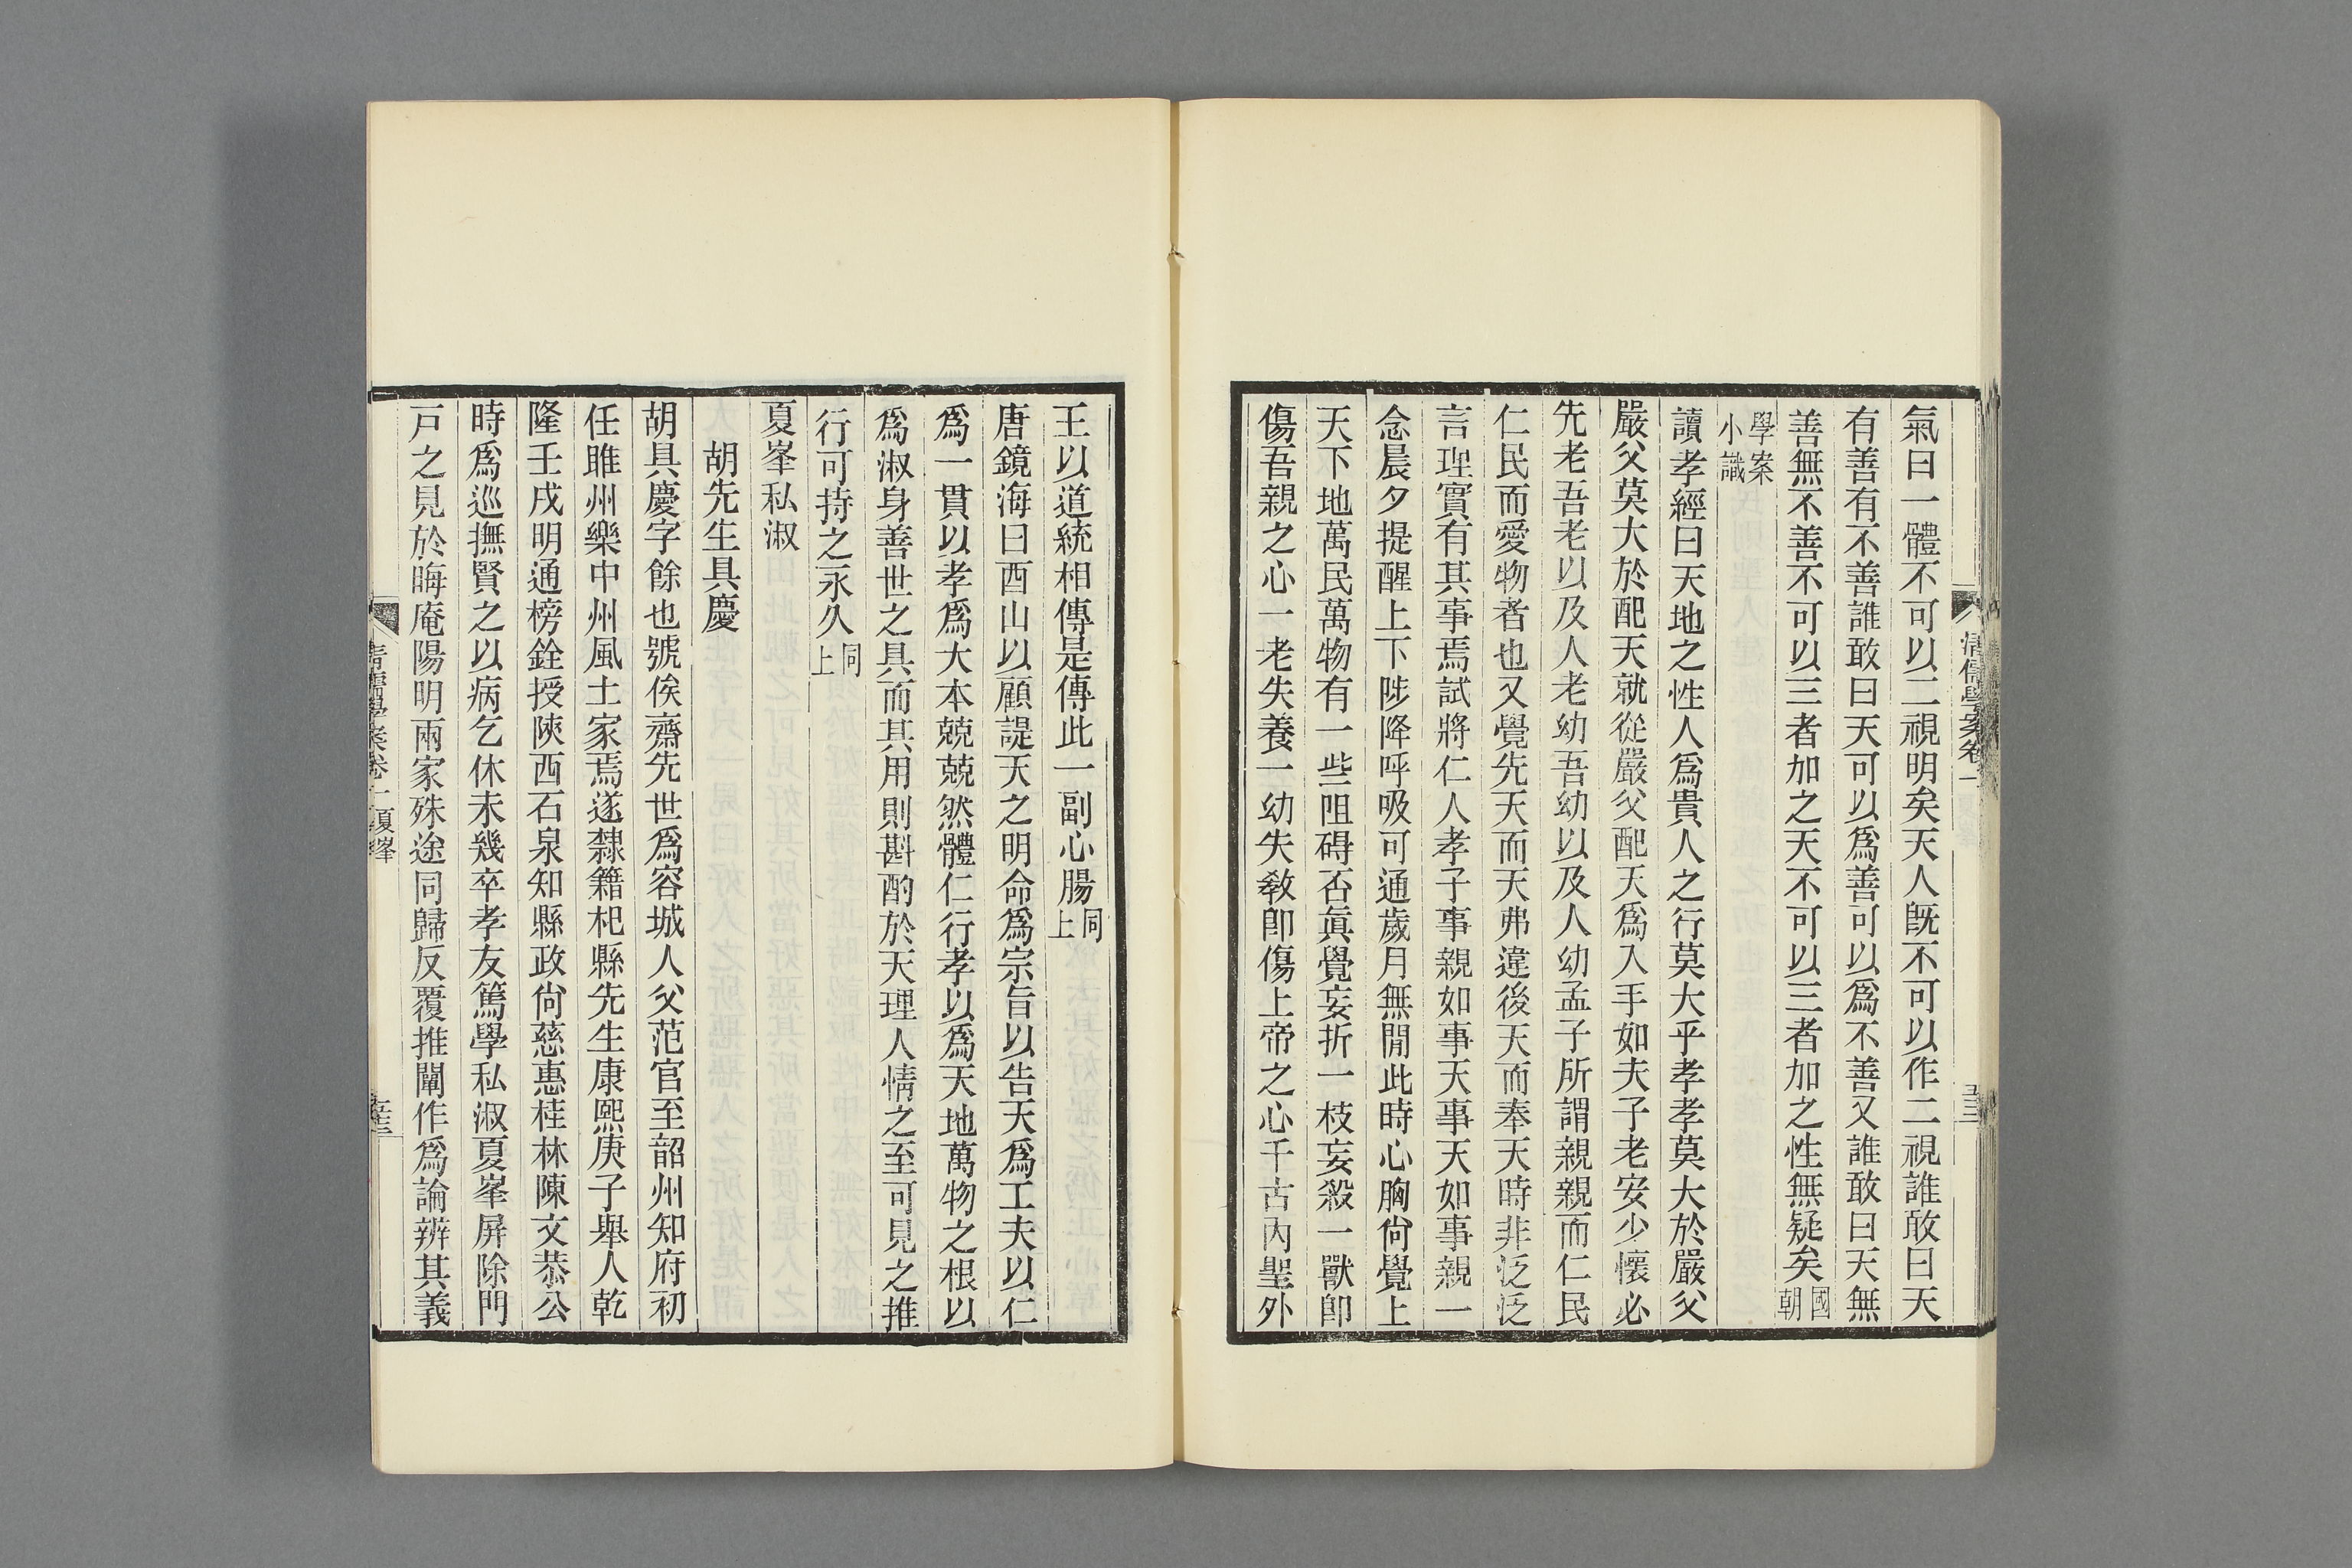 氣曰一體不可以二視明矣天人旣不可以作二視誰敢曰天
有善有不善誰敢曰天可以爲善可以爲不善又誰敢曰天無
善無不善不可以三者加之天不可以三者加之性無疑矣國朝
學案小識
讀孝經曰天地之性人爲貴人之行莫大乎孝孝莫大於嚴父
嚴父莫大於配天就從嚴父配天爲入手如夫子老安少懷必
先老吾老以及人老幼吾幼以及人幼孟子所謂親親而仁民
仁民而愛物者也又覺先天而天弗違後天而奉天時非泛泛
言理實有其事焉試將仁人孝子事親如事天事天如事親一
念晨夕提醒上下陟降呼吸可通歲月無閒此時心胸尙覺上
天下地萬民萬物有一些阻碍否眞覺妄折一枝妄殺一獸卽
傷吾親之心一老失養一幼失敎卽傷上帝之心千古內聖外
清儒學案卷一
五三
王以道統相傳是傳此一副心腸同上
唐鏡海曰酉山以顧諟天之明命爲宗旨以告天爲工夫以仁
爲一貫以孝爲大本兢兢然體仁行孝以爲天地萬物之根以
爲淑身善世之具而其用則斟酌於天理人情之至可見之推
行可持之永久同上
夏峯私淑
胡先生具慶
胡具慶字餘也號俟齋先世爲容城人父范官至韶州知府初
任睢州樂中州風土家焉遂隸籍杞縣先生康熙庚子舉人乾
隆壬戌明通榜銓授陝西石泉知縣政尙慈惠桂林陳文恭公
時爲巡撫賢之以病乞休未幾卒孝友篤學私淑夏峯屏除門
戸之見於晦庵陽明兩家殊途同歸反覆推闡作爲論辨其義
清儒學案卷一 夏峯
五三